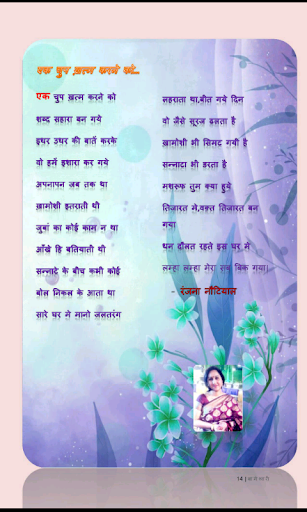 एक चुप ख़त्म करने को...
एक चुप ख़त्म करने को
शब्द सहारा बन गये
इधर उधर की बातें करके
वो हमें इशारा कर गये
अपनापन जब तक था
ख़ामोशी इतराती थी
जुबां का कोई काम न था
आँखें हि बतियाती थी
सन्नाटे के बीच कभी कोई
बोल निकल के आता था
सारे घर मे मानो जलतरंग
लहराता था,बीत गये दिन
वो जैसे सूरज ढलता है
ख़ामोशी भी सिमट गयी है
सन्नाटा भी डरता है
मशरूफ़ तुम क्या हुये
तिजारत मे,वक़्त तिजारत बन
गया
धन दौलत रहते इस घर मे
लम्हा लम्हा मेरा सब बिक गया।
- रंजना नौटियाल
14 |